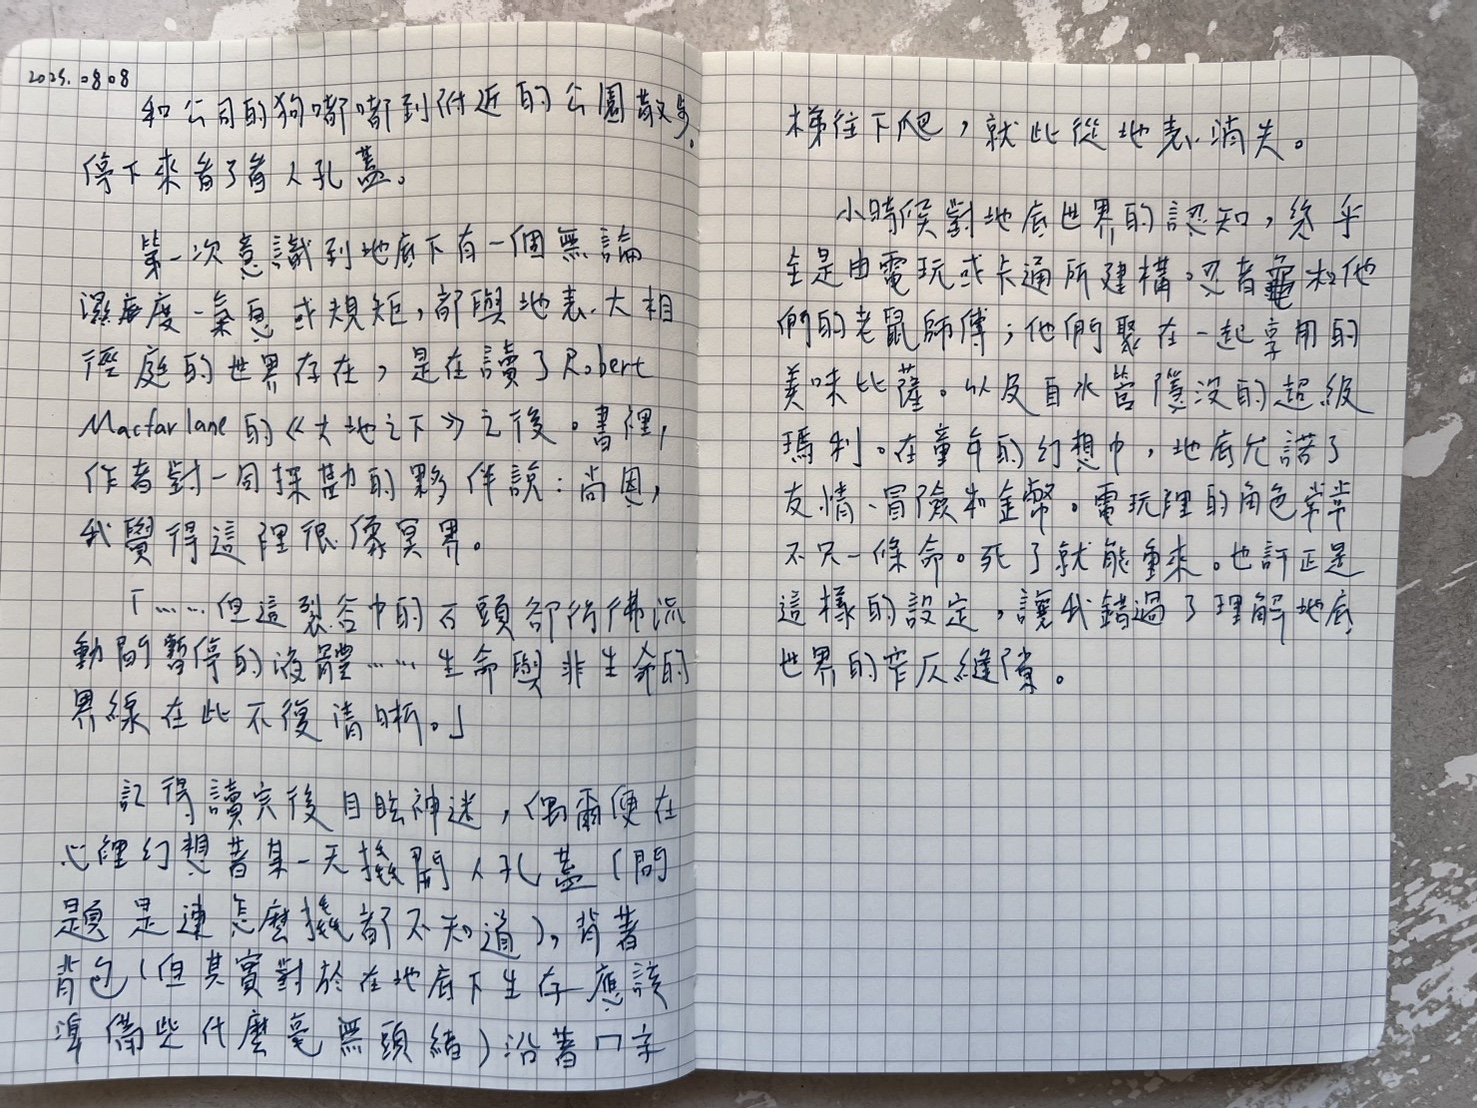 2025.0808
和公司的狗嘟嘟到附近的公園散步。
停下來看了看人孔蓋。
第一次意識到地底下有一個無論
濕度、氣息或規矩,都與地表大相
徑庭的世界存在,是在讀了Robert
Macfarlane的《大地之下》之後。書裡,
作者對一同探勘的夥伴說:尚恩,
我覺得這裡很像冥界。
「……但這裂谷中的石頭卻彷彿流
動間暫停的液體……生命與非生命的
界線在此不復清晰。」
記得讀完後目眩神迷,偶爾便在
心裡幻想著某一天撬開人孔蓋(問
題是連怎麼撬都不知道),背著
背包(但其實對於在地底下生存應該
準備些什麼毫無頭緒)沿著ㄇ字
梯往下爬,就此從地表消失。
小時候對地底世界的認知,幾乎
全是由電玩或卡通所建構。忍者龜和他
們的老鼠師傅;他們聚在一起享用的
美味比薩。以及自水管隱沒的超級
瑪利。在童年的幻想中,地底允諾了
友情、冒險和金幣。電玩裡的角色常常
不只一條命。死了就能重來。也許正是
這樣的設定,讓我錯過了理解地底
世界的窄仄縫隙。